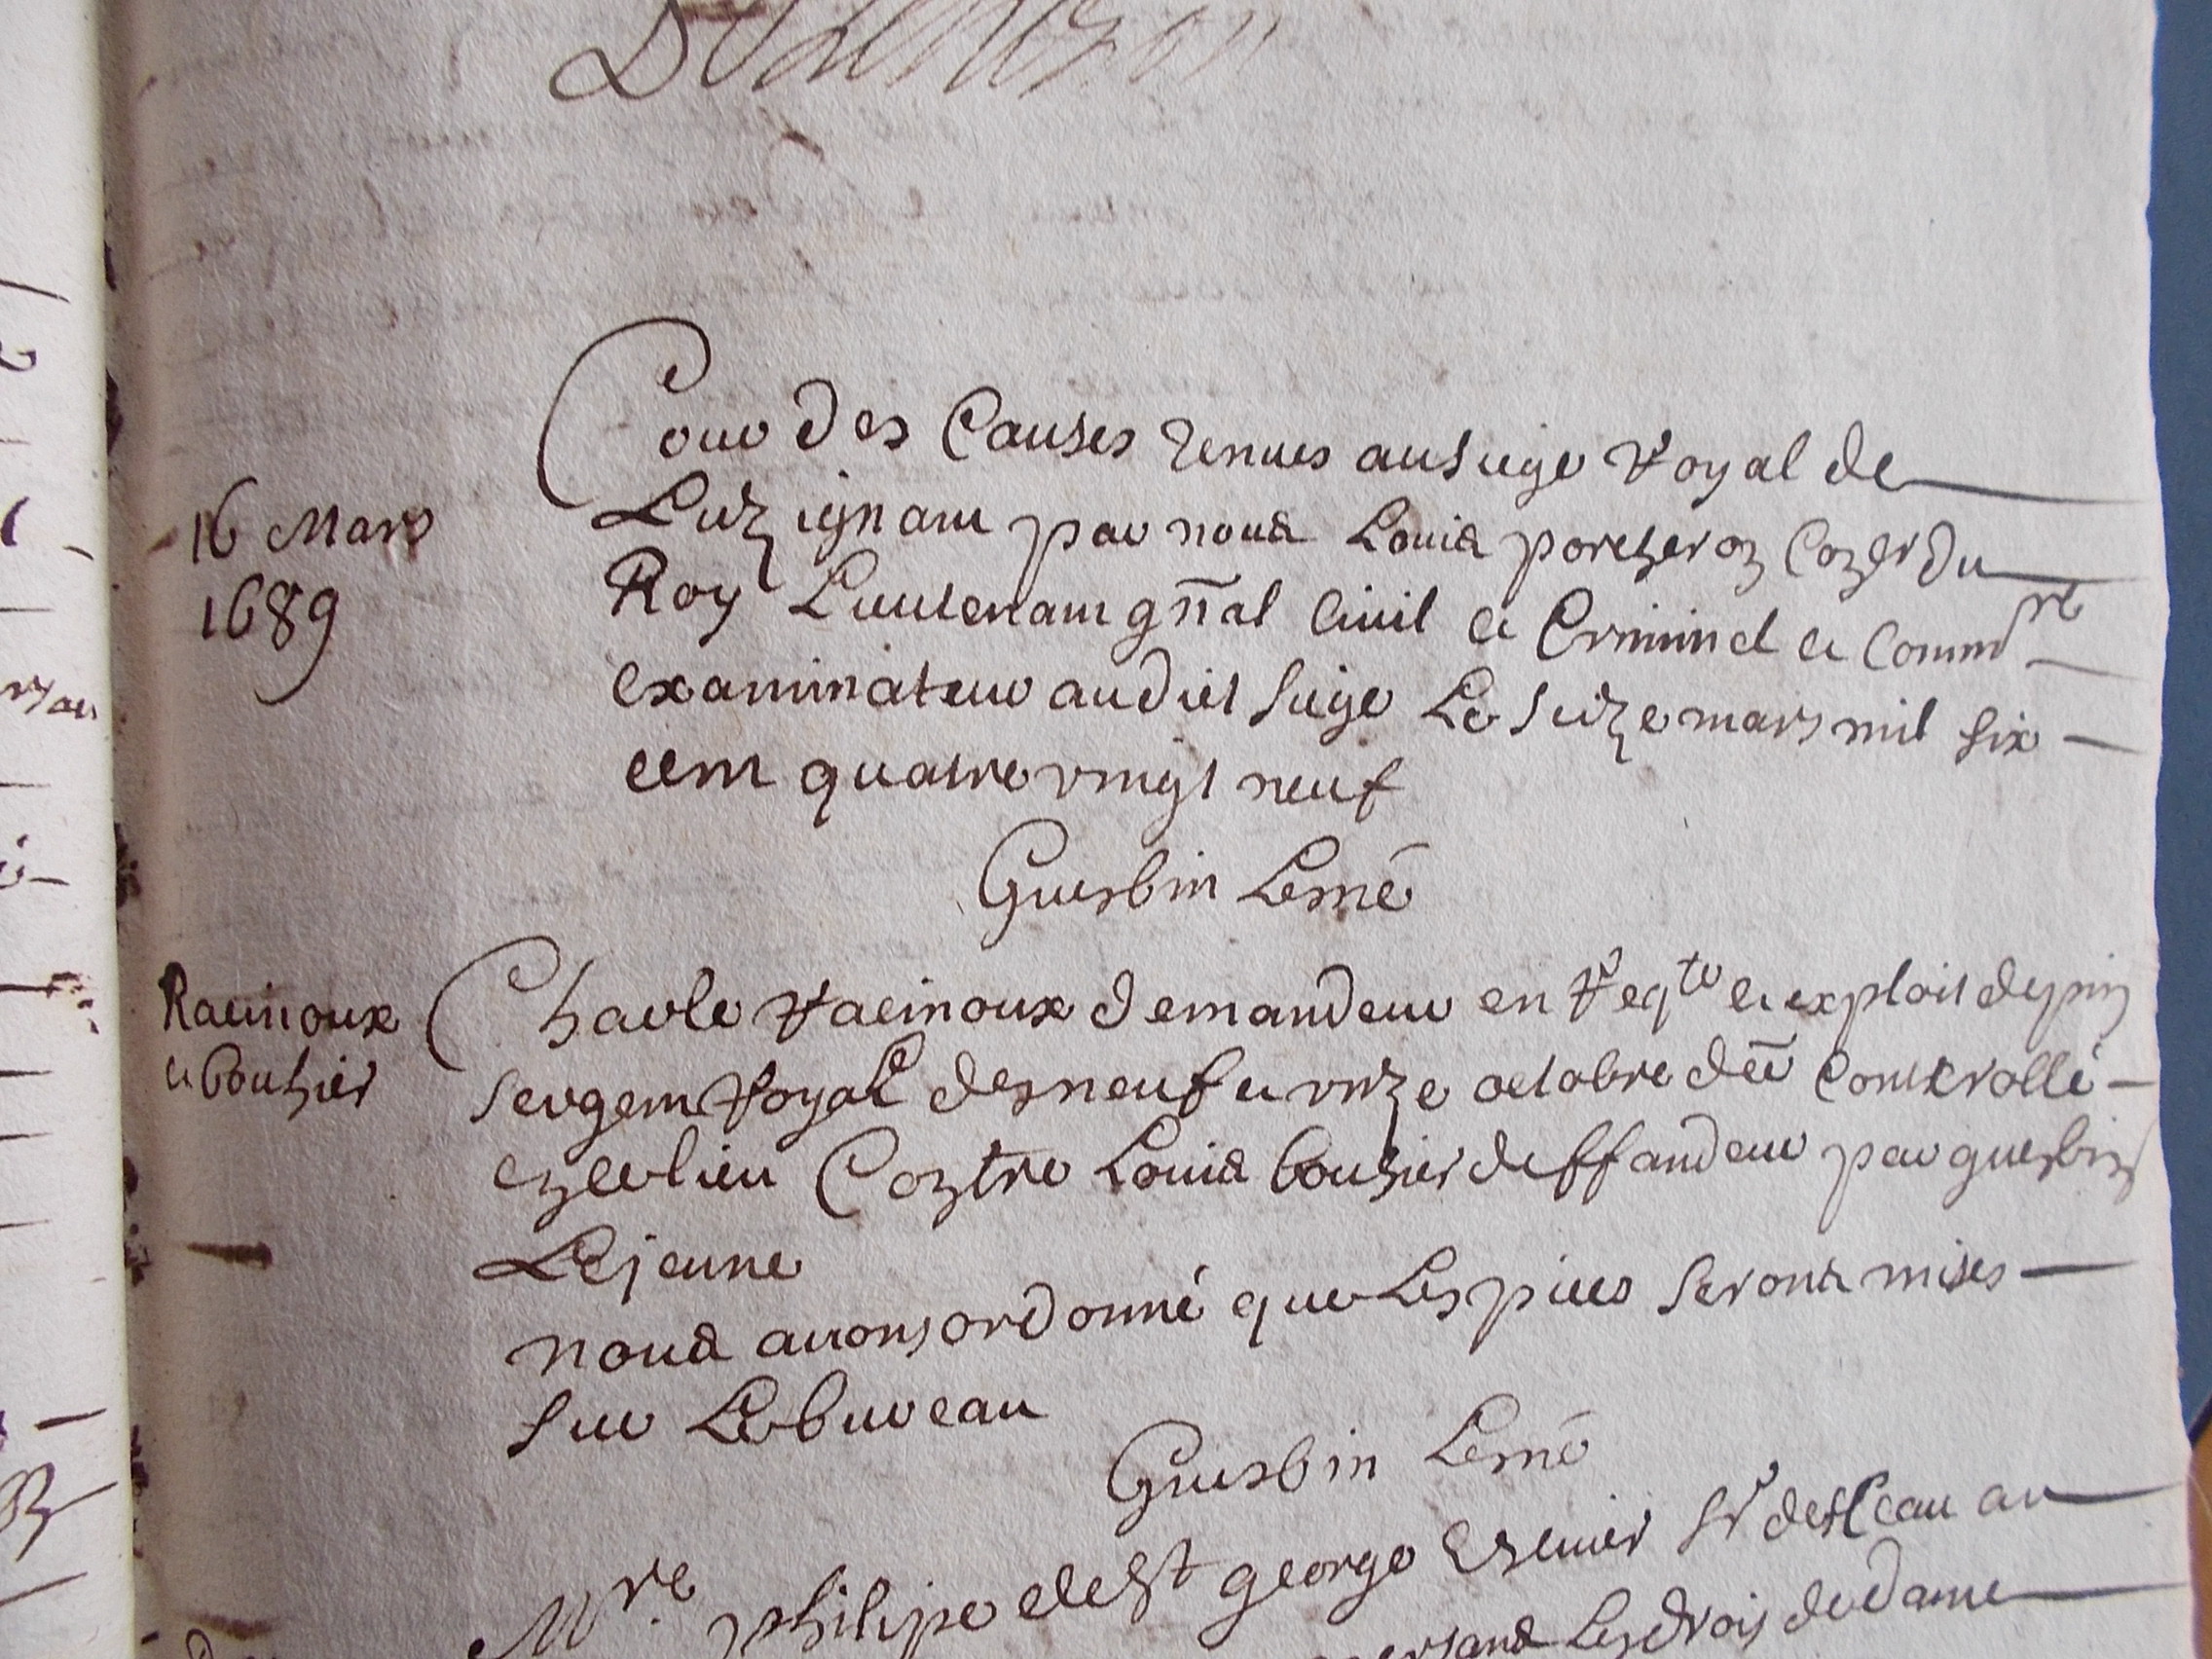 16 Mars
1689
Cour des Causes tenues au siege royal de
Luzignam par nous Louis porcheron Coner du
Roy Lieutenant gnal Civil et Criminel et Commre
examinateur audict siege Le seize mars mil six
cent quatre vingt neuf
Guerbin Lesné
Racinoux
et bouhier
Charle racinoux demandeur en reqte et exploit depin
sergent royal des neuf et unze octobre der Controllé
en ce lieu Contre Louis bouhier deffandeur par guerbin
Le jeune
nous avons ordonné que Les pieces seront mises
sur Le bureau
Guerbin Lesné
Mre philipe de St george Esquier sr de au
Les drois de dame